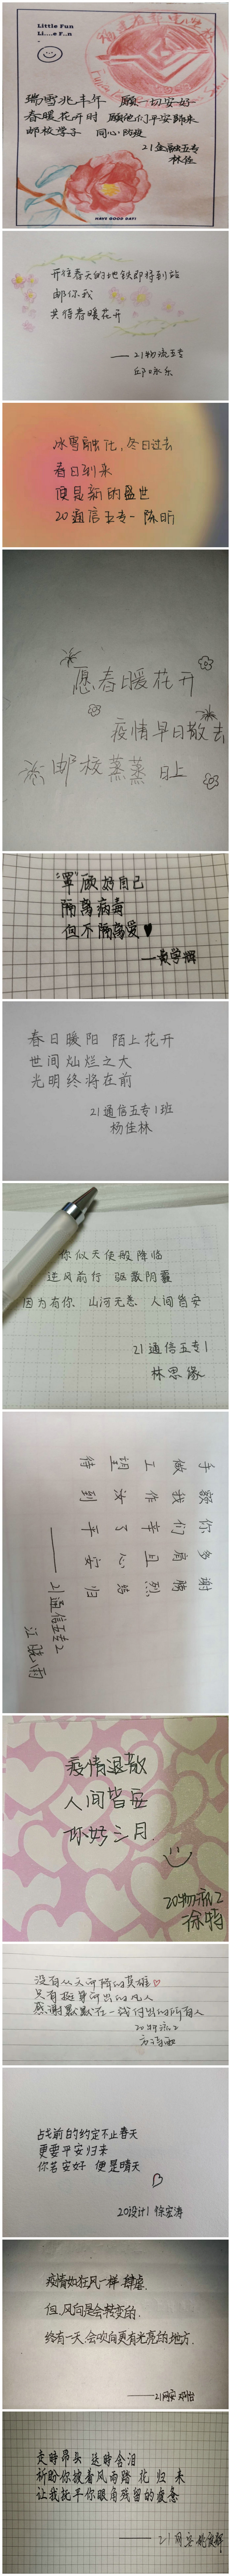 Little Fun
Li....e F..n
瑞雪兆丰年 愿一切安好
春暖花开时 愿他们平安归来
邮校学子 同心防疫
21金融五专
林佳
HAVE GOOD DAY!
开往春天的地铁即将到站
邮你我
共待春暖花开
——21物流五专
邱咏乐
冰雪融化,冬日过去
春日到来
便是新的盛世
20通信五专一陈昕
愿春暖花开
疫情早日散去
邮校蒸蒸日上
“罩”顾好自己
隔离病毒
但不隔离爱♥
—黄学辉
春日暖阳 陌上花开
世间灿烂之大
光明终将在前
21通信五专1班
杨佳林
你似天使般降临
逆风前行 驱散阴霾
因为有你 山河无恙 人间皆安
21通信五专1
林思缘
手额你多谢
做我们肩膀
工作辛且烈
汝了心结
待到平安归
——21通信五专2
江晓雨
疫情退散
人间皆安
你好三月
20物流2
徐特
没有从天而降的英雄
只有挺身而出的凡人
感谢默默在一线付出的所有人
20物流2
方诗雨
战前的约定不止春天
更要平安归来
你若安好 便是晴天
20设计1 徐宏涛
疫情如狂风一样肆虐.
但风向是会转变的.
终有一天,会吹向更有光亮的地方.
——21网安 邓怡
走时昂头 送时含泪
祈盼你披着风雨踏花归来
让我抚平你眼角残留的疲惫
——21网安